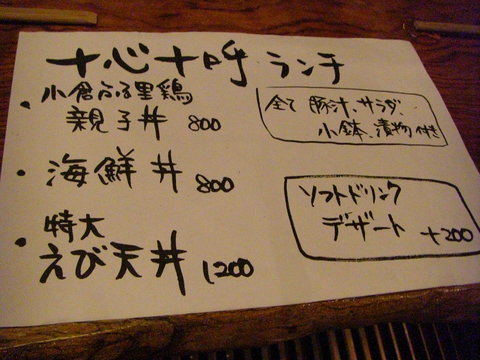 十心十呼 ランチ
・小倉ふる里鶏
親子丼 800
・海鮮丼 800
・特大
えび天丼 1200
全て 豚汁、サラダ、
小鉢、漬物 付き
ソフトドリンク
デザート +200